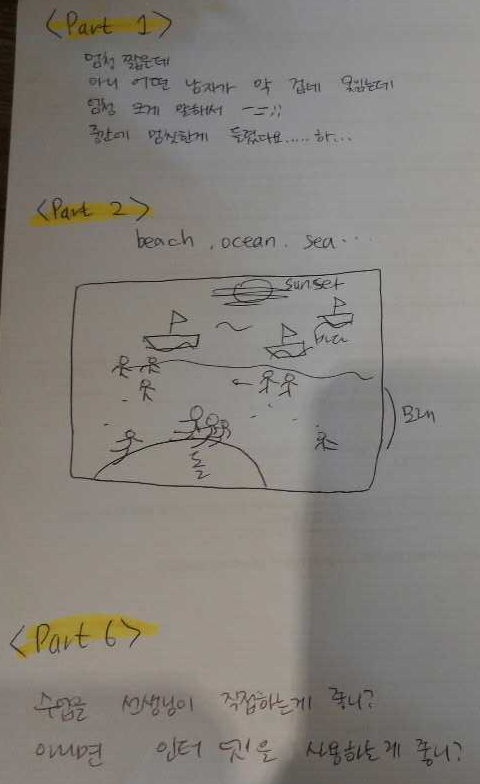 <Part 1>
엄청 짧은데
아니 어떤 남자가 막 겁네
엄청 크게 말해서 -_-;;
중간에 멈칫한게 들렸다요.....하...
<Part 2>
beach , ocean . sea...
sunset
모래
돌
<Part 6>
수업을 선생님이 직접하는게 좋니?
아니면 인터넷을 사용하는게 좋니?